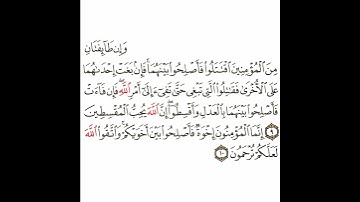 وَإِن طَآئِفَتَانِ
مِنَ ٱلْمُؤْمِنِينَ ٱقْتَتَلُوا۟ فَأَصْلِحُوا۟ بَيْنَهُمَا ۖ فَإِنۢ بَغَتْ إِحْدَىٰهُمَا
عَلَى ٱلْأُخْرَىٰ فَقَـٰتِلُوا۟ ٱلَّتِى تَبْغِى حَتَّىٰ تَفِىٓءَ إِلَىٰٓ أَمْرِ ٱللَّهِ ۚ فَإِن فَآءَتْ
فَأَصْلِحُوا۟ بَيْنَهُمَا بِٱلْعَدْلِ وَأَقْسِطُوٓا۟ ۖ إِنَّ ٱللَّهَ يُحِبُّ ٱلْمُقْسِطِينَ
٩ إِنَّمَا ٱلْمُؤْمِنُونَ إِخْوَةٌ فَأَصْلِحُوا۟ بَيْنَ أَخَوَيْكُمْ ۚ وَٱتَّقُوا۟ ٱللَّهَ
لَعَلَّكُمْ تُرْحَمُونَ ١٠